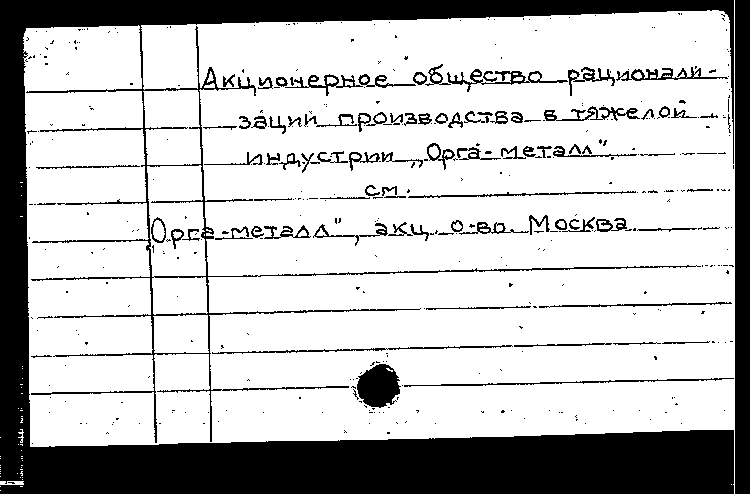 Акционерное общество рационали-
зации производства в тяжелой
индустрии „Орга-металл".
см.
Орга-металл", акц. о-во. Москва